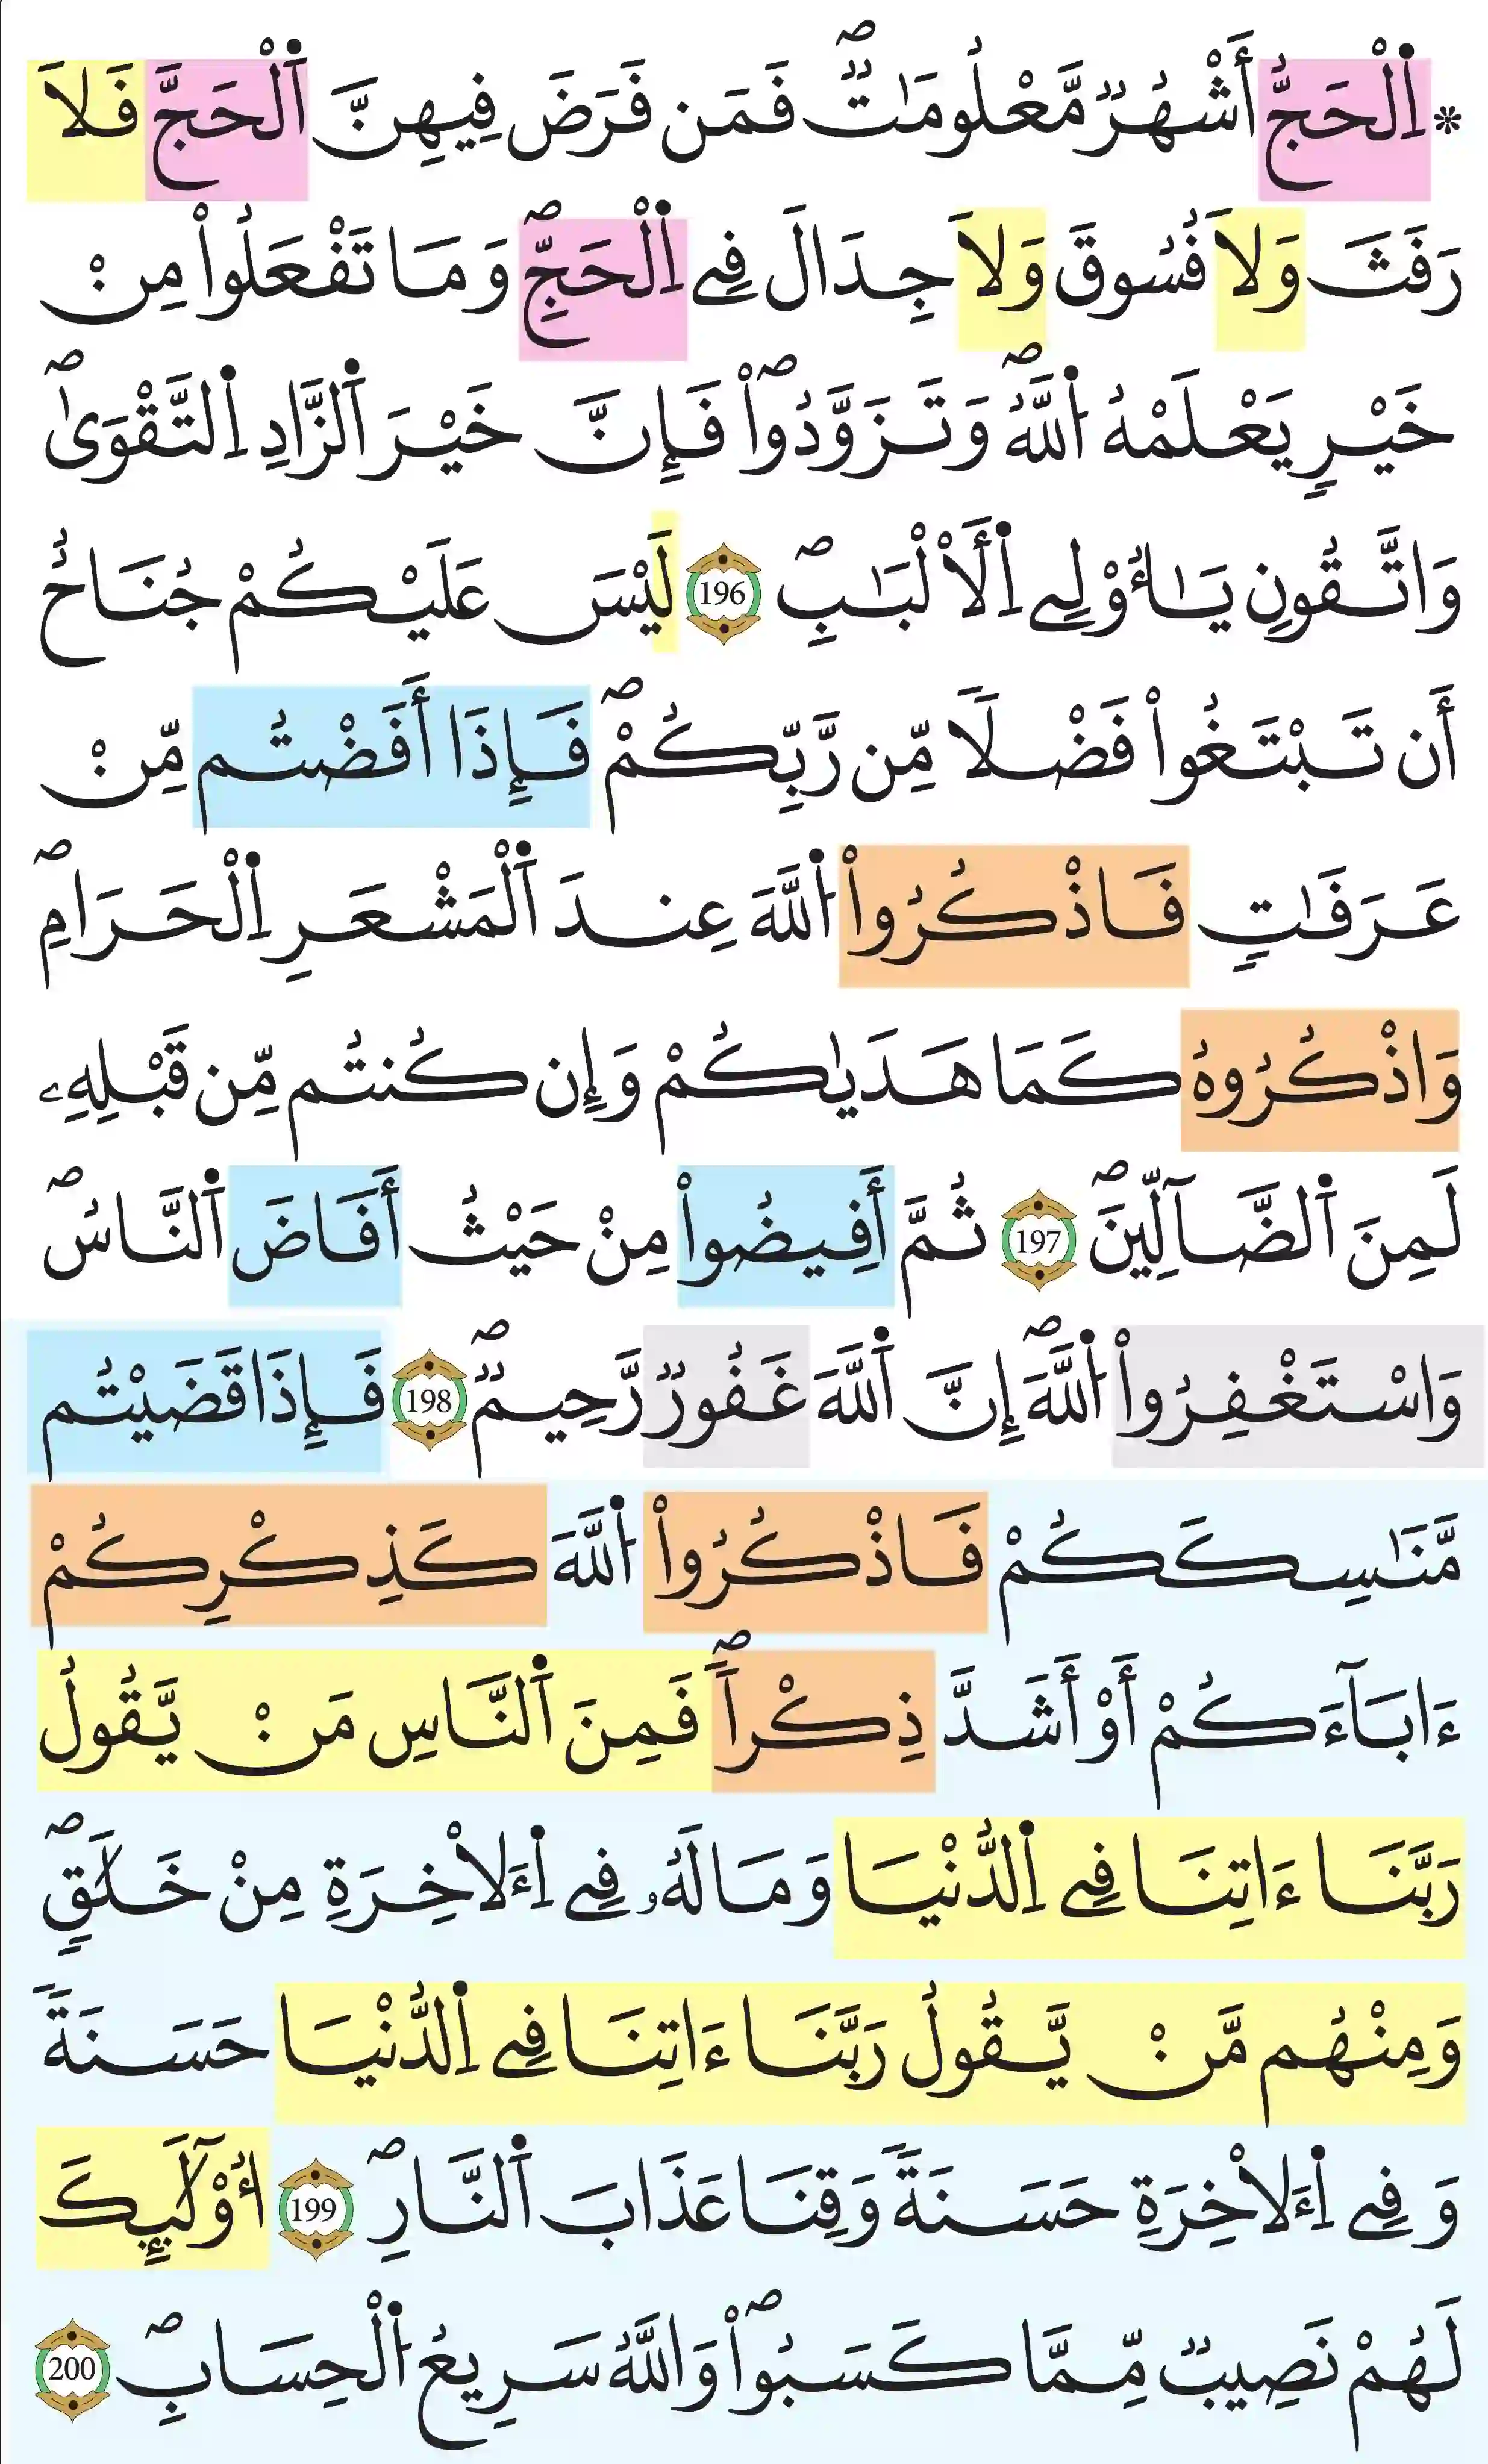 * اِ۬لْحَجُّ أَشْهُرٞ مَّعْلُومَٰتٞۖ فَمَن فَرَضَ فِيهِنَّ اَ۬لْحَجَّ فَلَا
رَفَثَ وَلَا فُسُوقَ وَلَا جِدَالَ فِے اِ۬لْحَجِّۖ وَمَا تَفْعَلُواْ مِنْ
خَيْرٖ يَعْلَمْهُ اُ۬للَّهُۖ وَتَزَوَّدُواْۖ فَإِنَّ خَيْرَ اَ۬لزَّادِ اِ۬لتَّقْوَىٰۖ
وَاتَّقُونِ يَٰأُوْلِے اِ۬لْأَلْبَٰبِۖ 196 لَيْسَ عَلَيْكُمْ جُنَاحٌ
أَن تَبْتَغُواْ فَضْلاٗ مِّن رَّبِّكُمْۖ فَإِذَا أَفَضْتُم مِّنْ
عَرَفَٰتٖ فَاذْكُرُواْ اُ۬للَّهَ عِندَ اَ۬لْمَشْعَرِ اِ۬لْحَرَامِۖ
وَاذْكُرُوهُ كَمَا هَدَيٰكُمْ وَإِن كُنتُم مِّن قَبْلِهِۦ
لَمِنَ اَ۬لضَّآلِّينَۖ 197 ثُمَّ أَفِيضُواْ مِنْ حَيْثُ أَفَاضَ اَ۬لنَّاسُۖ
وَاسْتَغْفِرُواْ اُ۬للَّهَۖ إِنَّ اَ۬للَّهَ غَفُورٞ رَّحِيمٞۖ 198 فَإِذَا قَضَيْتُم
مَّنَٰسِكَكُمْ فَاذْكُرُواْ اُ۬للَّهَ كَذِكْرِكُمْ
ءَابَآءَكُمْ أَوْ أَشَدَّ ذِكْراٗۖ فَمِنَ اَ۬لنَّاسِ مَنْ يَّقُولُ
رَبَّنَا ءَاتِنَا فِے اِ۬لدُّنْيَا وَمَا لَهُۥ فِے اِ۬ءَلْاخِرَةِ مِنْ خَلَٰقٖۖ
وَمِنْهُم مَّنْ يَّقُولُ رَبَّنَا ءَاتِنَا فِے اِ۬لدُّنْيَا حَسَنَةٗ
وَفِے اِ۬ءَلْاخِرَةِ حَسَنَةٗ وَقِنَا عَذَابَ اَ۬لنَّارِۖ 199 أُوْلَٰٓئِكَ
لَهُمْ نَصِيبٞ مِّمَّا كَسَبُواْۖ وَاللَّهُ سَرِيعُ اُ۬لْحِسَابِۖ 200